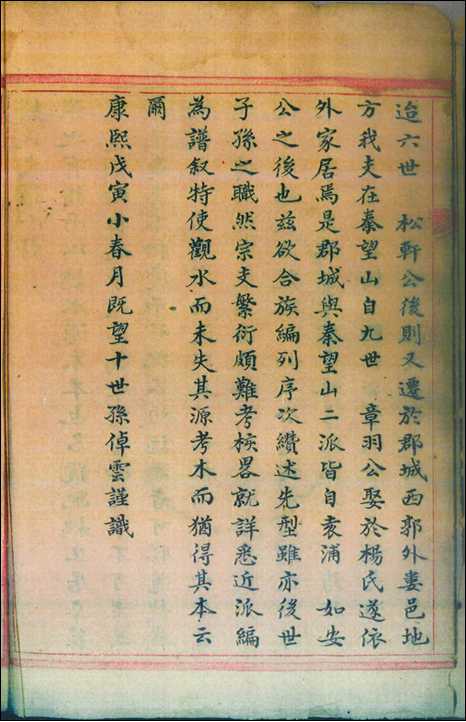 迨六世　松軒公後則又遷於郡城西郭外婁邑地
方我支在秦望山自九世　章羽公娶於楊氏遂依
外家居焉是郡城與秦望山二派皆自袁浦　如安
公之後也茲欲合族編列序次纘述先型雖亦後世
子孫之職然宗支繁衍頗難考核畧就詳悉近派編
為譜叙特使觀水而未失其源考木而猶得其本云
爾
康熙戊寅小春月既望十世孫倬雲謹識